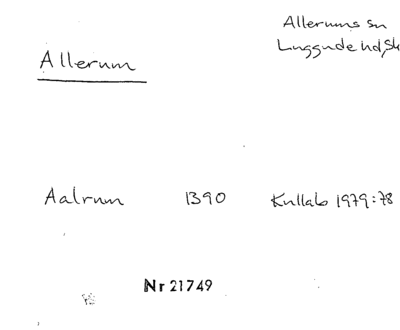 Allerums sn
Luggude hd, Sk
Allerum
Aalrum 1390 Kullab 1979:78
Nr 21749